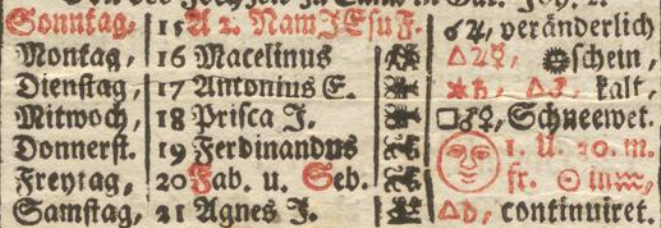 Von der Hochzeit zu Cana in Gal. Joh. 2.
Sonntag, 15 A 2. Nam JEsu F. ☍♃, veränderlich
Montag, 16 Macelinus △♃☿, ☼schein,
Dienstag, 17 Antonius E. ⚹♄, △♂, kalt,
Mitwoch, 18 Prisca J. □♂♀, Schneewet.
Donnerst. 19 Ferdinandus 1. U. 10. m.
Freytag, 20 Fab. u. Seb. fr. ☉ in ♒,
Samstag, 21 Agnes J. △♄, continuiret.